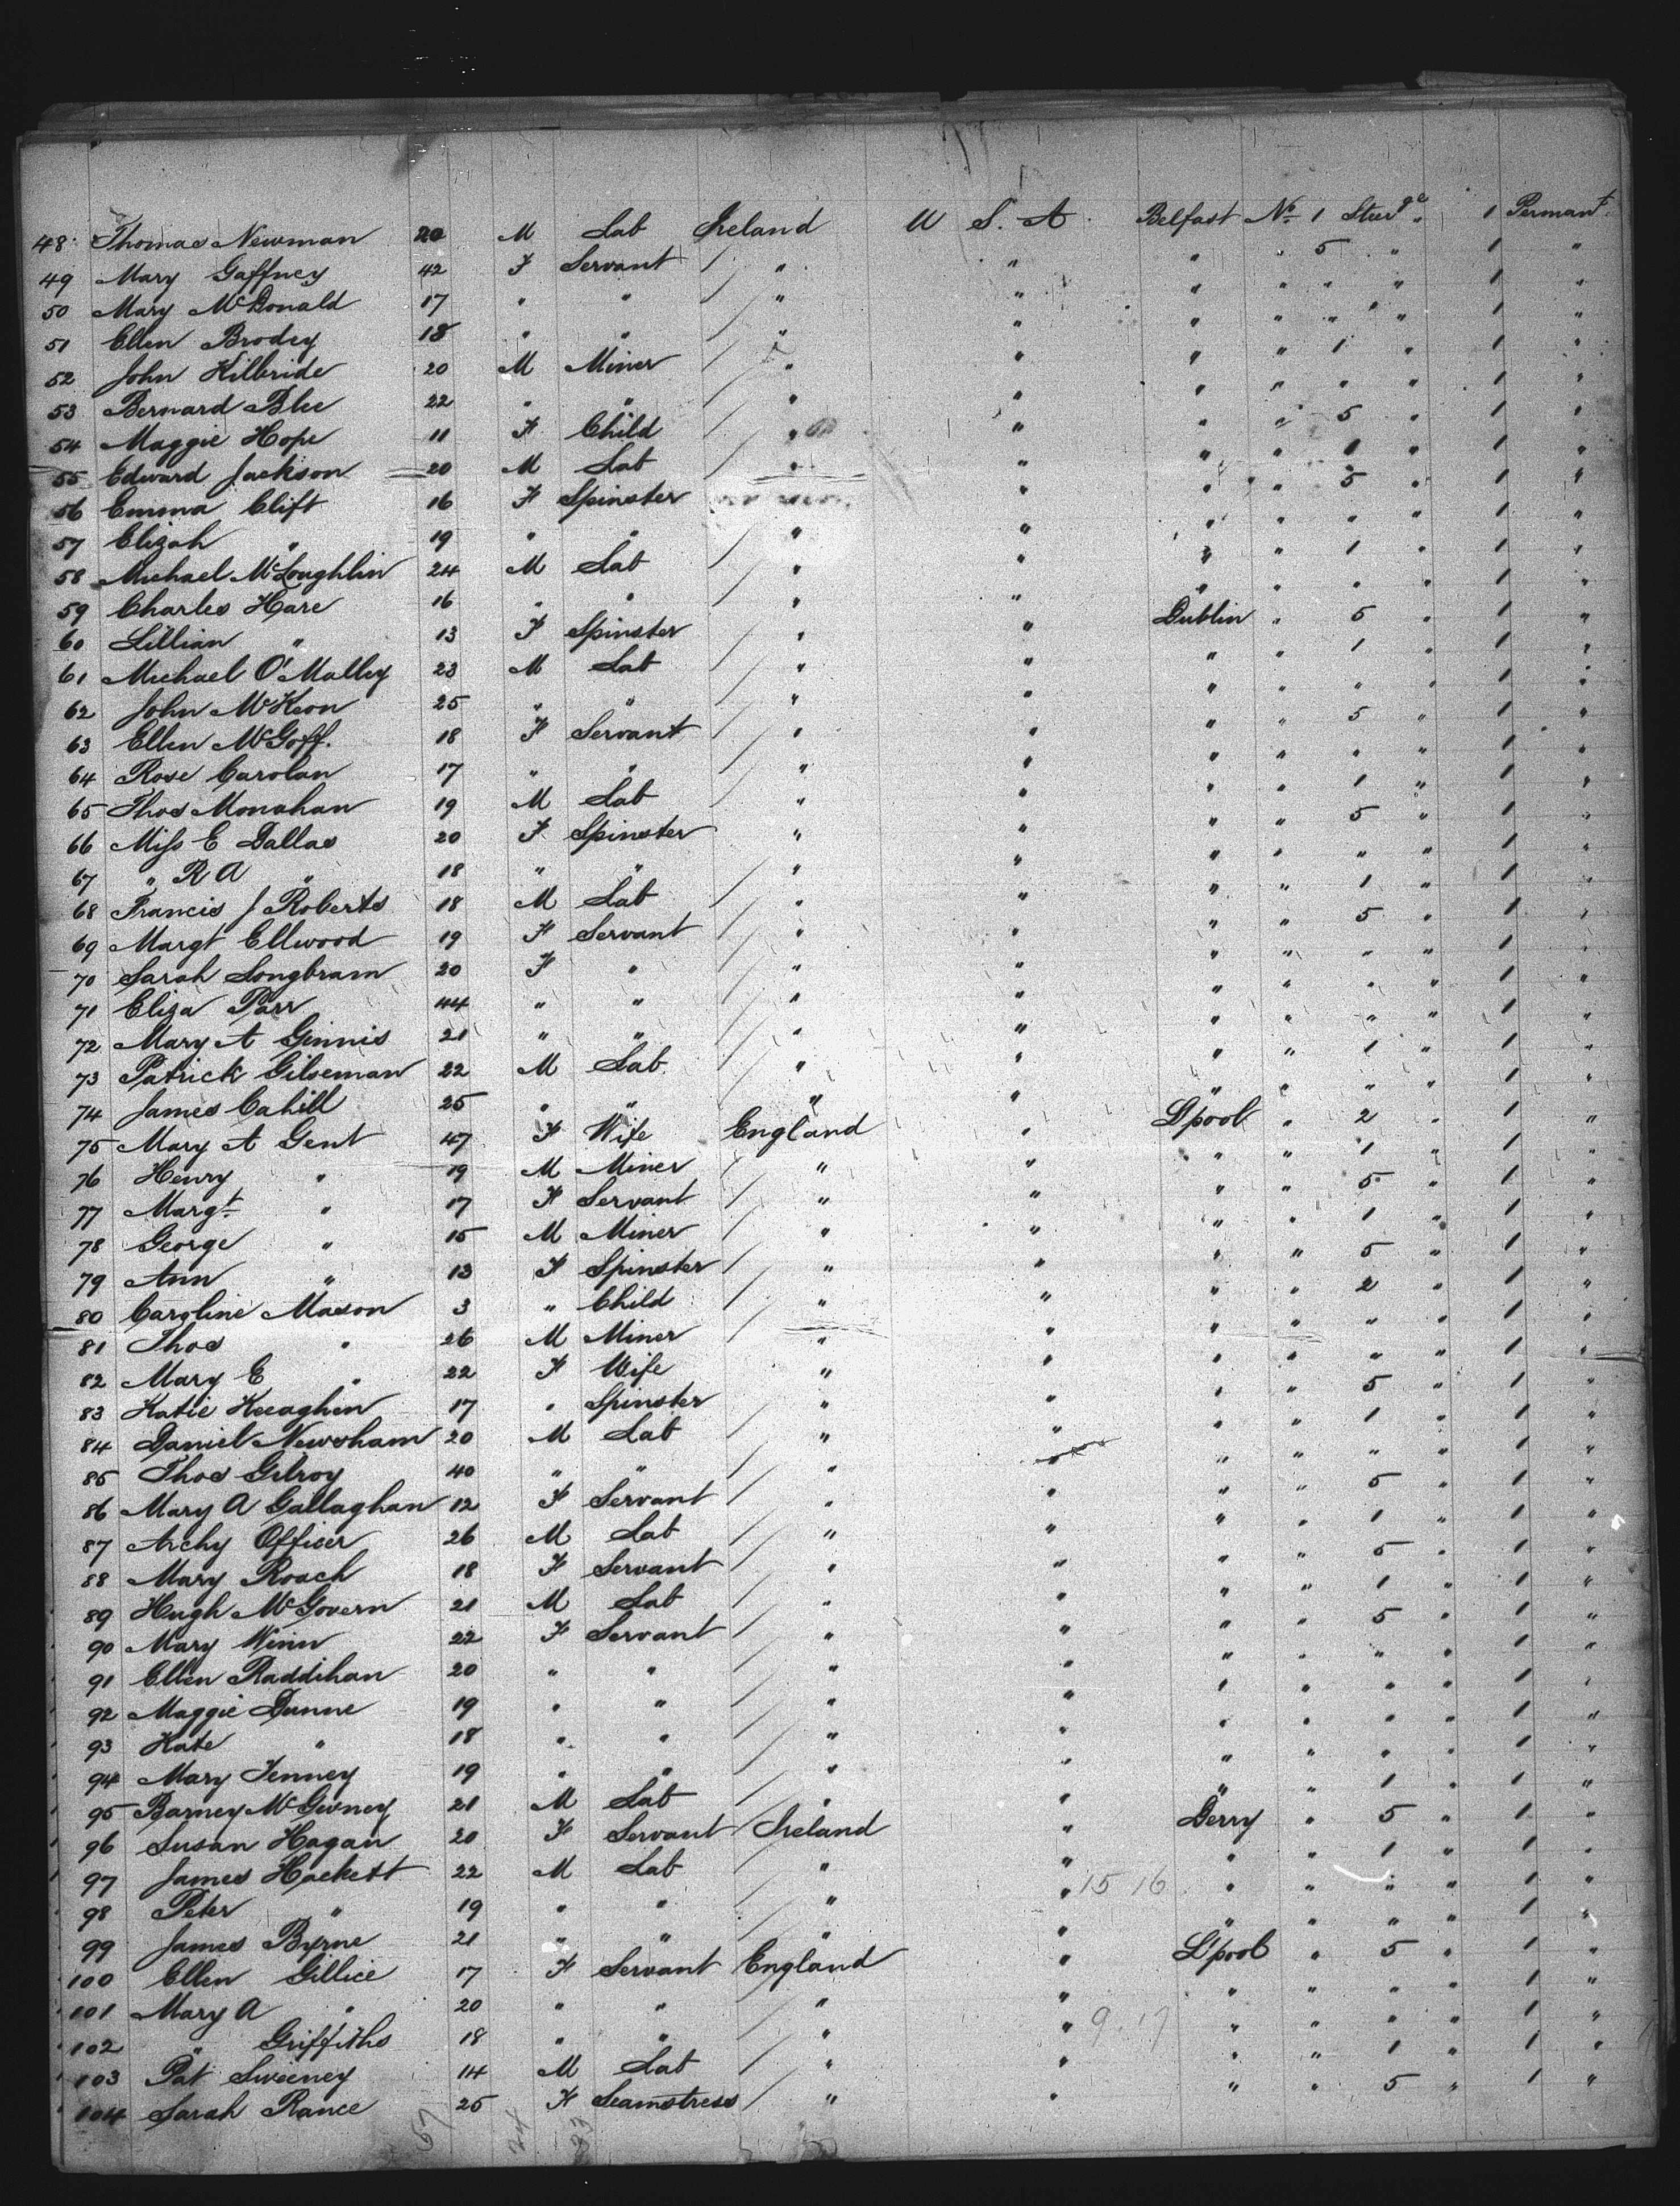 48 Thomas Newman 20 M Lab Ireland U S. A. Belfast No 1 Steerge 1 Permant.
49 Mary Gaffney 42 F Servant / " " " 5 " 1 "
50 Mary McDonald 17 " " / " " " " " " 1 "
51 Ellen Brodey 18 " " / " " " " " " 1 "
52 John Kilbride 20 M Miner / " " " " 1 " 1 "
53 Bernard Blee 22 " " / " " " " " " 1 "
54 Maggie Hope 11 F Child / " " " " 5 " 1 "
55 Edward Jackson 20 M Lab / " " " " 1 " 1 "
56 Emma Clift 16 F Spinster " " " 5 " 1 "
57 Elizah " 19 " " / " " " " " " 1 "
58 Michael McLoughlin 24 M Lab / " " " " 1 " 1 "
59 Charles Hare 16 " " / " " " " " " 1 "
60 Lillian " 13 F Spinster / " " Dublin " 5 " 1 "
61 Michael O'Malley 23 M Lab / " " " " 1 " 1 "
62 John McKeon 25 " " / " " " " " " 1 "
63 Ellen McGoff. 18 F Servant / " " " " 5 " 1 "
64 Rose Carolan 17 " " / " " " " " " 1 "
65 Thos Monahan 19 M Lab / " " " " 1 " 1 "
66 Miss E Dallas 20 F Spinster / " " " " 5 " 1 "
67 " R A " 18 " " / " " " " " " 1 "
68 Francis J Roberts 18 M Lab / " " " " 1 " 1 "
69 Margt Ellwood 19 F Servant / " " " " 5 " 1 "
70 Sarah Longbram 20 F " / " " " " " " 1 "
71 Eliza Parr 44 " " / " " " " " " 1 "
72 Mary A Ginnis 21 " " / " " " " " " 1 "
73 Patrick Gilseman 22 M Lab / " " " " 1 " 1 "
74 James Cahill 25 " " / " " " " " " 1 "
75 Mary A Gent 47 F Wife England " L'pool " 2 " 1 "
76 Henry " 19 M Miner / " " " " 1 " 1 "
77 Margt " 17 F Servant / " " " " 5 " 1 "
78 George " 15 M Miner / " " " " 1 " 1 "
79 Ann " 13 F Spinster / " " " " 5 " 1 "
80 Caroline Mason 3 " Child / " " " " 2 " 1 "
81 Thos " 26 M Miner / " " " " " " 1 "
82 Mary E " 22 F Wife / " " " " " " 1 "
83 Katie Keeaghen 17 " Spinster / " " " " 5 " 1 "
84 Daniel Newsham 20 M Lab / " " " " 1 " 1 "
85 Thos Gilroy 40 " " / " " " " " " 1 "
86 Mary A Gallaghan 12 F Servant / " " " " 5 " 1 "
87 Archy Officer 26 M Lab / " " " " 1 " 1 "
88 Mary Roach 18 F Servant / " " " " 5 " 1 "
89 Hugh McGovern 21 M Lab / " " " " 1 " 1 "
90 Mary Winn 22 F Servant / " " " " 5 " 1 "
91 Ellen Raddihan 20 " " / " " " " " " 1 "
92 Maggie Dunne 19 " " / " " " " " " 1 "
93 Kate " 18 " " / " " " " " " 1 "
94 Mary Fenney 19 " " / " " " " " " 1 "
95 Barney McGivney 21 M Lab / " " " " 1 " 1 "
96 Susan Hagan 20 F Servant / Ireland " Derry " 5 " 1 "
97 James Hackett 22 M Lab / " " " " 1 " 1 "
98 Peter " 19 " " / " " 15 16 " " " " 1 "
99 James Byrne 21 " " / " " " " " " 1 "
100 Ellen Gillice 17 F Servant England " L'pool " 5 " 1 "
101 Mary A " 20 " " / " " " " " " 1 "
102 " Griffiths 18 " " / " " 9 . 17 " " " " 1 "
103 Pat Sweeney 14 M Lab / " " " " 1 " 1 "
104 Sarah Rance 25 F Seamstress / " " " " 5 " 1 "